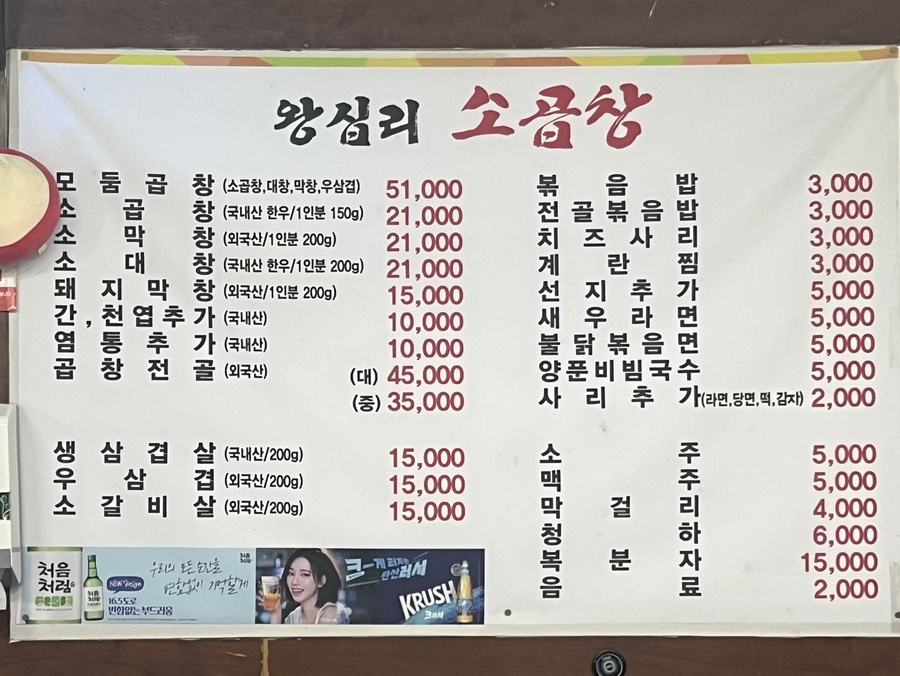 왕십리 소곱창
모둠곱창 (소곱창,대창,막창,우삼겹) 51,000
소곱창 (국내산 한우/1인분 150g) 21,000
소막창 (외국산/1인분 200g) 21,000
소대창 (국내산 한우/1인분 200g) 21,000
돼지막창 (외국산/1인분 200g) 15,000
간,천엽추가 (국내산) 10,000
염통추가 (국내산) 10,000
곱창전골 (외국산) (대) 45,000
(중) 35,000
생삼겹살 (국내산/200g) 15,000
우삼겹 (외국산/200g) 15,000
소갈비살 (외국산/200g) 15,000
볶음밥 3,000
전골볶음밥 3,000
치즈사리 3,000
계란찜 3,000
선지추가 5,000
새우라면 5,000
불닭볶음면 5,000
양푼비빔국수 5,000
사리추가(라면,당면,떡,감자) 2,000
소주 5,000
맥주 5,000
막걸리 4,000
청하 6,000
복분자 15,000
음료 2,000
처음
처럼
FRESH
처음
처럼
우리의 모든 순간을
변함없이 기억할게
NEW Design
16.5도로
변함없는 부드러움
처음
처럼
크-게 터지는
탄산러시
KRUSH
크러시